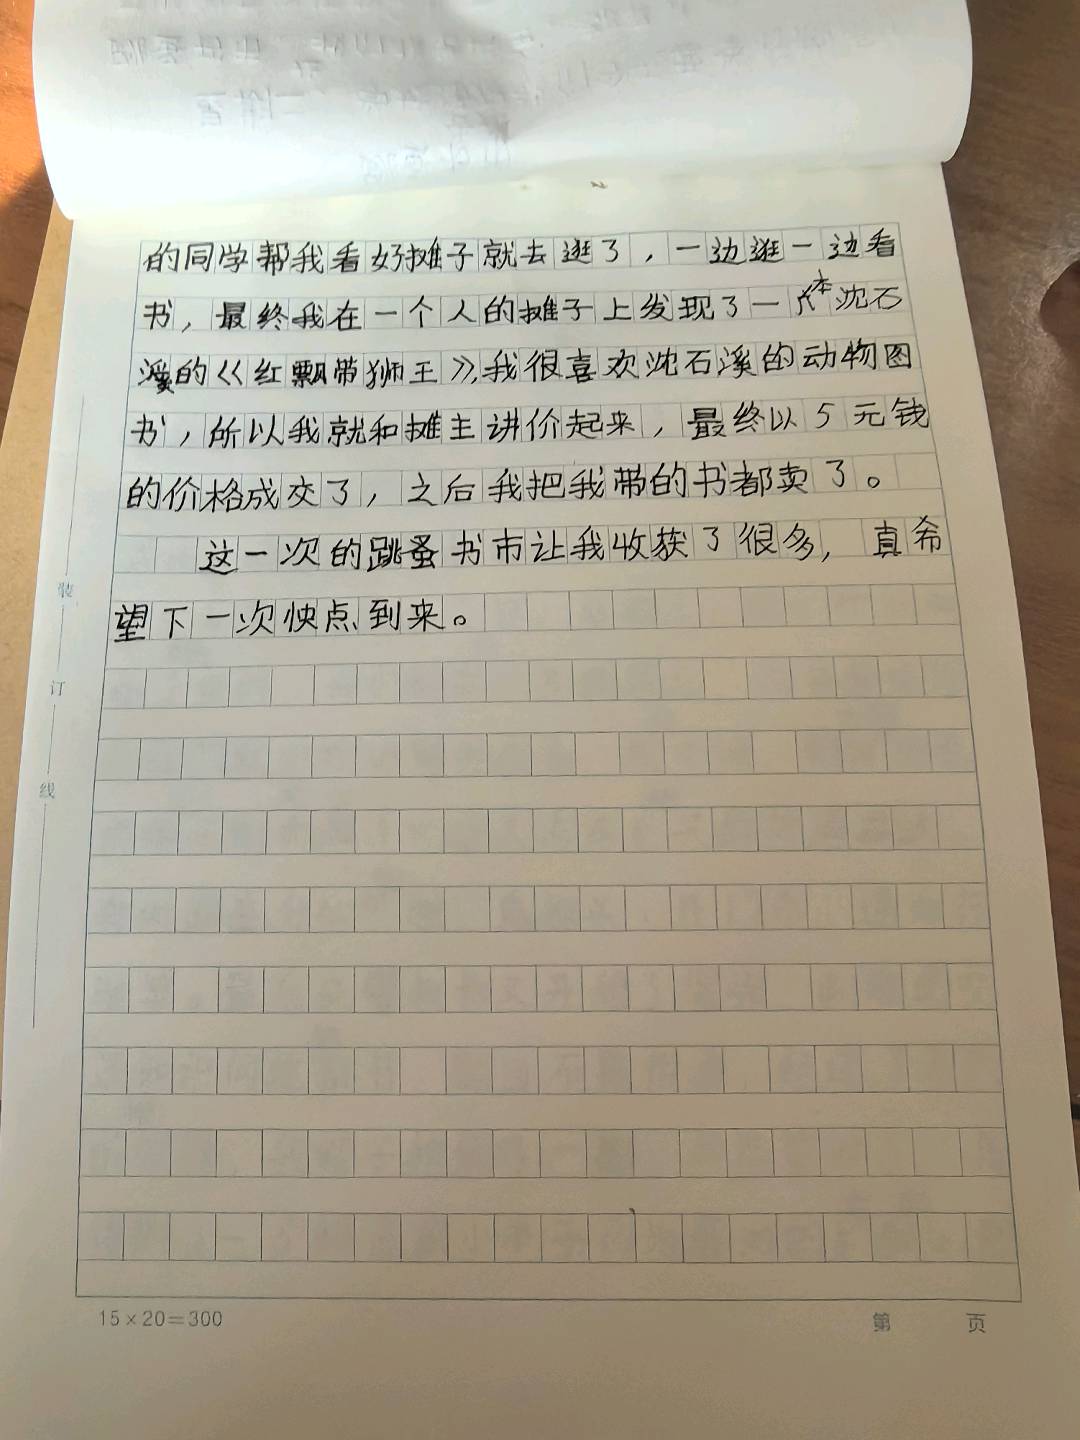 的同学帮我看好摊子就去逛了，一边逛一边看
书，最终我在一个人的摊子上发现了一本沈石
溪的《红飘带狮王》，我很喜欢沈石溪的动物图
书，所以我就和摊主讲价起来，最终以5元钱
的价格成交了，之后我把我带的书都卖了。
这一次的跳蚤书市让我收获了很多，真希
望下一次快点到来。
装
订
线
15×20=300
第 页